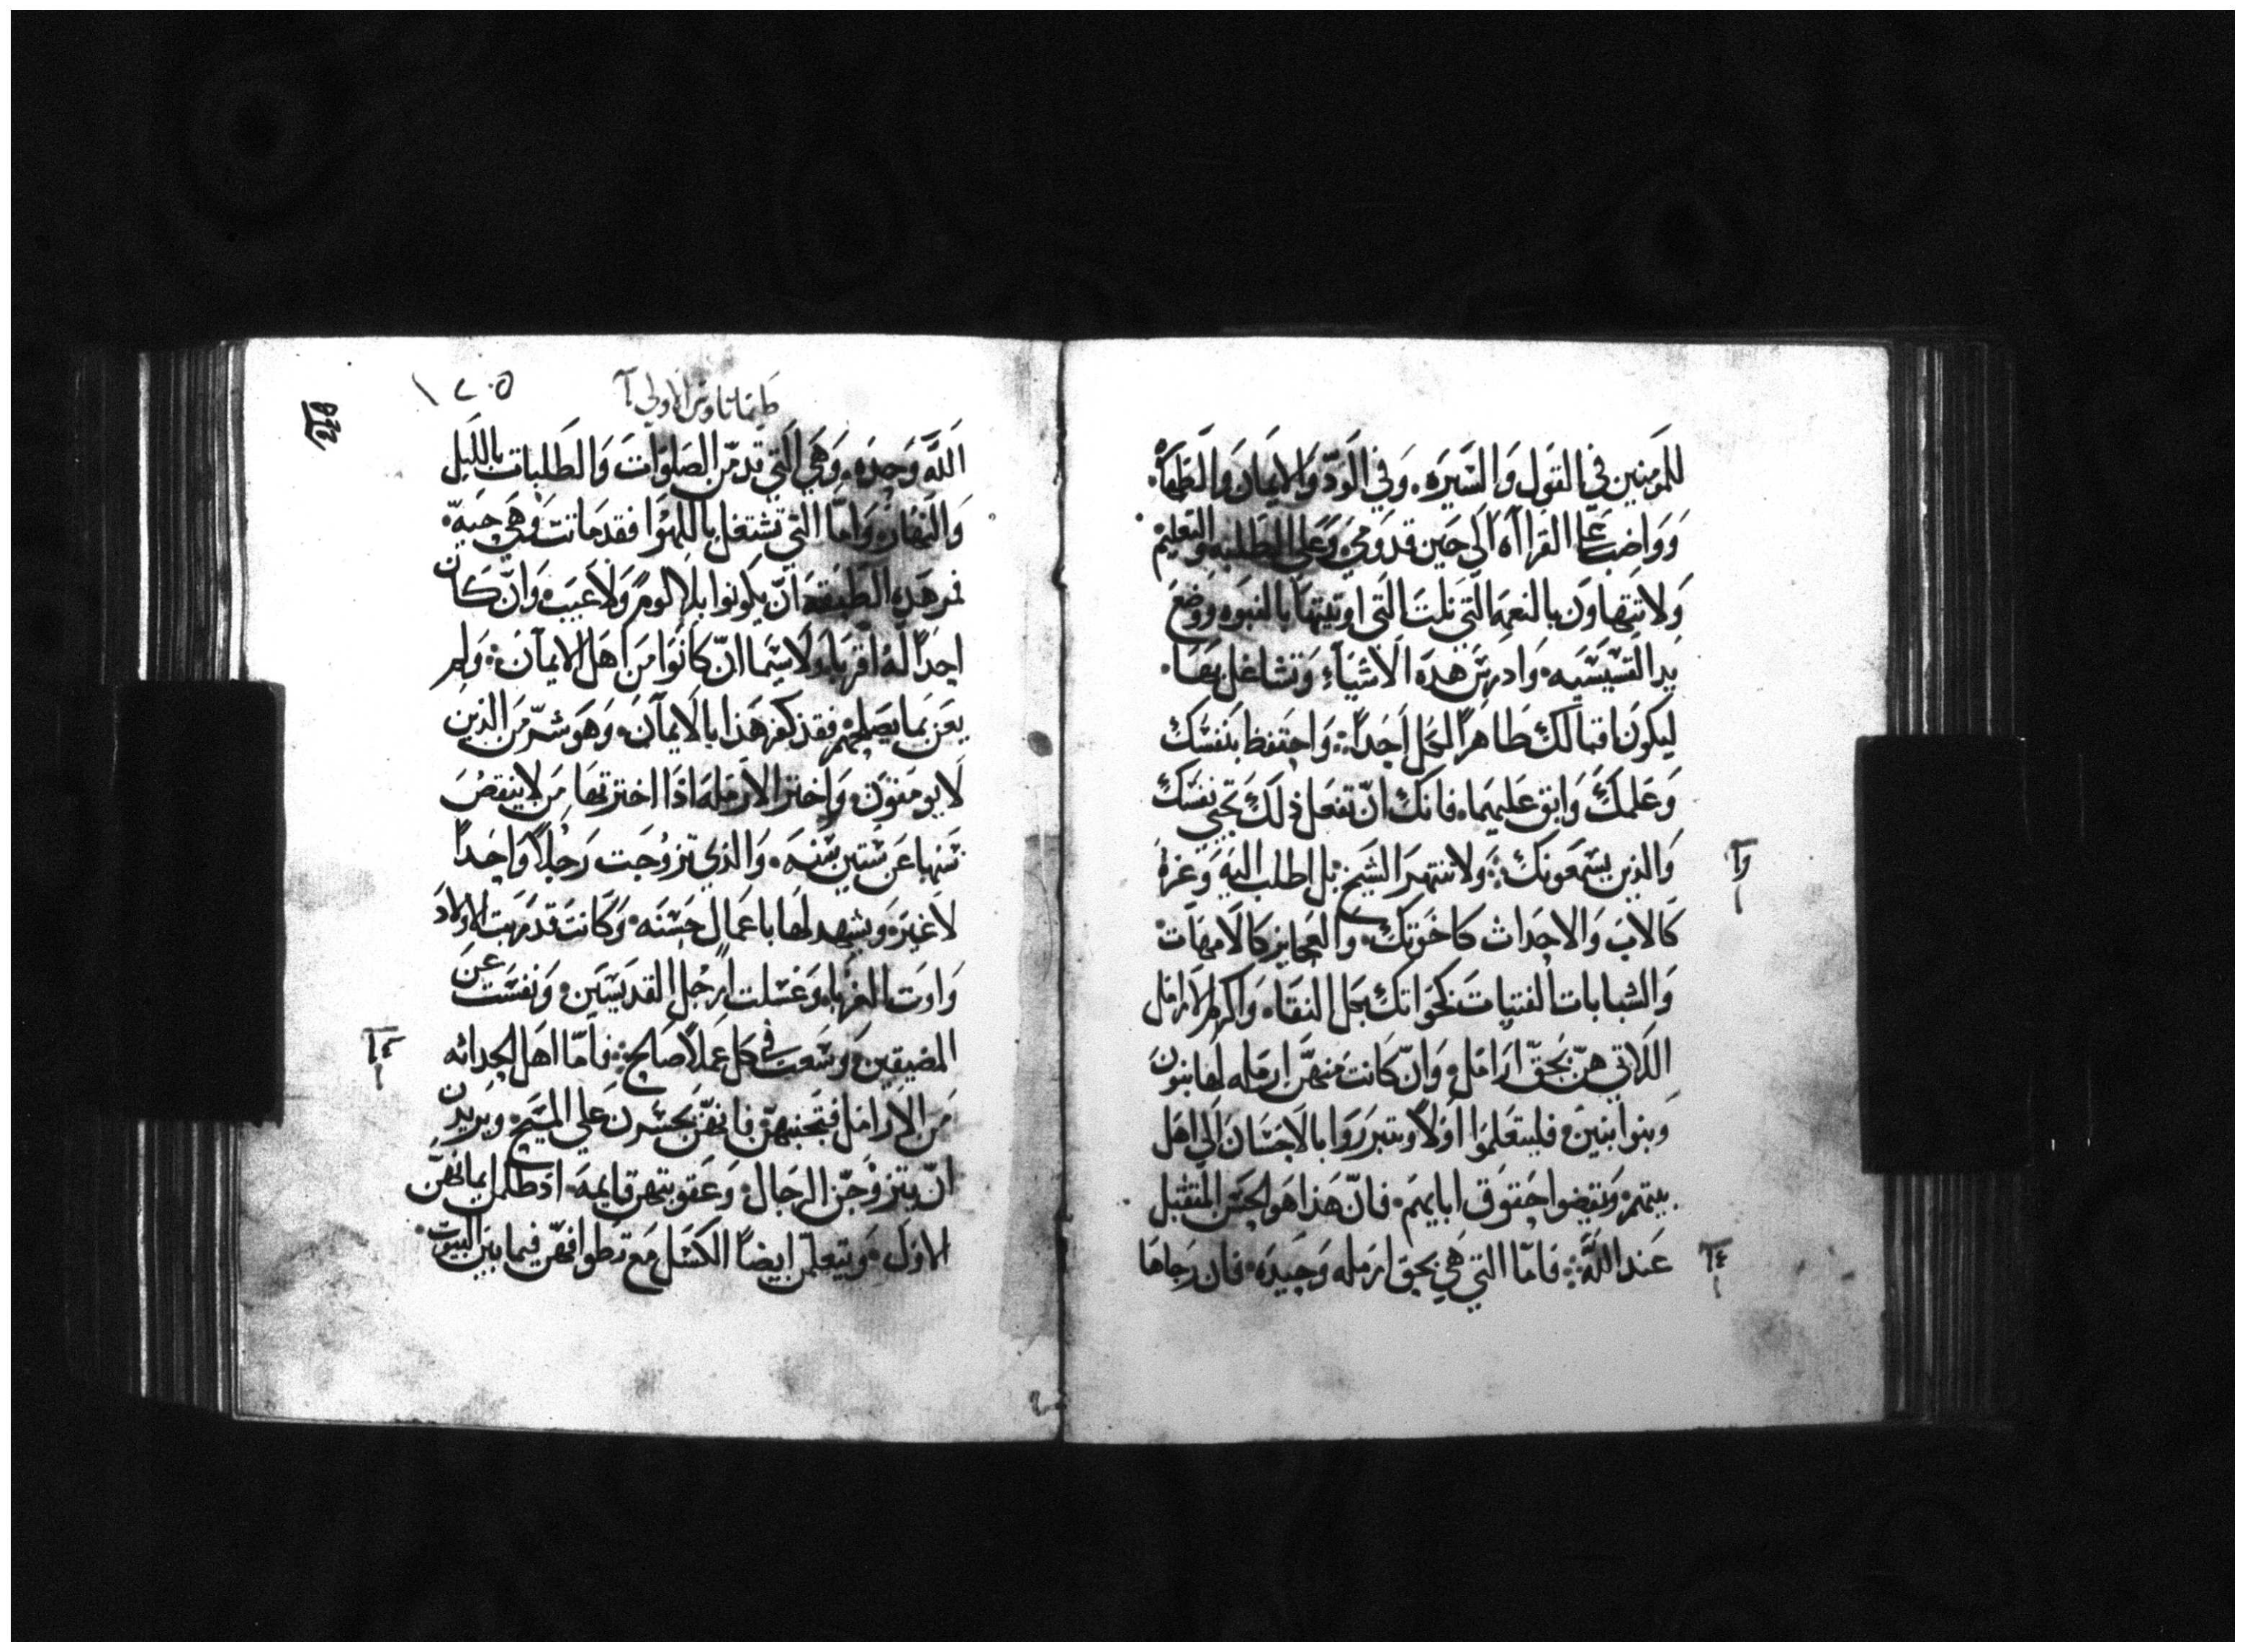 للمومنين في القول والسيره. وفي الود والايمان والطهاه.
وواضب علي القرااه الي حين قدومي. وعلي الطلبه والتعليم
ولا تتهاون بالنعمه التي نلت التي اوتيتها بالنبوه ووضع
يد القسيسيه. وادرس هذه الاشياء وتشاغل بها.
ليكون اقبالك ظاهرا لكل احدا. واحتفظ بنفسك
وعلمك وابق عليهما. فانك ان تفعل ذلك تحيي نفسك
والذين يسمعونك. ولا تنتهر الشيخ بل اطلب اليه وعزه
وآ
كالاب والاحداث كاخوتك. والعجايز كالامهات
والشابات الفتيات كاخواتك بكل النقاه. واكرم الارامل
اللاتي هن بحق ارامل. وان كانت منهن ارمله لها بنون
وبنوا بنين. فليتعلموا اولا ويتبرروا بالاحسان الي اهل
بيتهم. ويقضوا حقوق ابايهم. فان هذا هو الحسن المتقبل
عند الله. فاما التي هي بحق ارمله وحيده. فان رجاها
طيماتاوس الاولي
الله وحده. وهي التي تدمن الصلوات والطلبات بالليل
والنهار. واما التي تشتغل باللهوا فقد ماتت وهي حيه.
فمر هذه الطبقه ان يكونوا بلا لوم ولا عيب. وان كان
احدا له اقربا ولا سيما ان كانوا من اهل الايمان. ولم
يعن بما يصلحهم فقد كفر هذا بالايمان. وهو شر من الذين
لا يومنون. واختر الارمله اذا اخترتها من لا ينقص
سنها عن ستين سنه. والذي تزوجت رجلا واحدا
لا غيره ويشهد لها باعمال حسنه. وكانت قد ربت الاولاد
واوت الغربا. وغسلت ارجل القديسين. ونفست عن
المضيقين. وسعت في كل عملا صالح. فاما اهل الحداثه
من الارامل فتجنبهن. فانهن يجسرن علي المسيح. ويريدن
ان يتزوجن الرجال. وعقوبتهن قايمه. اذ ظلمن ايمانهن
الاول. ويتعلمن ايضا الكسل مع تطوافهن فيما بين البيوت.